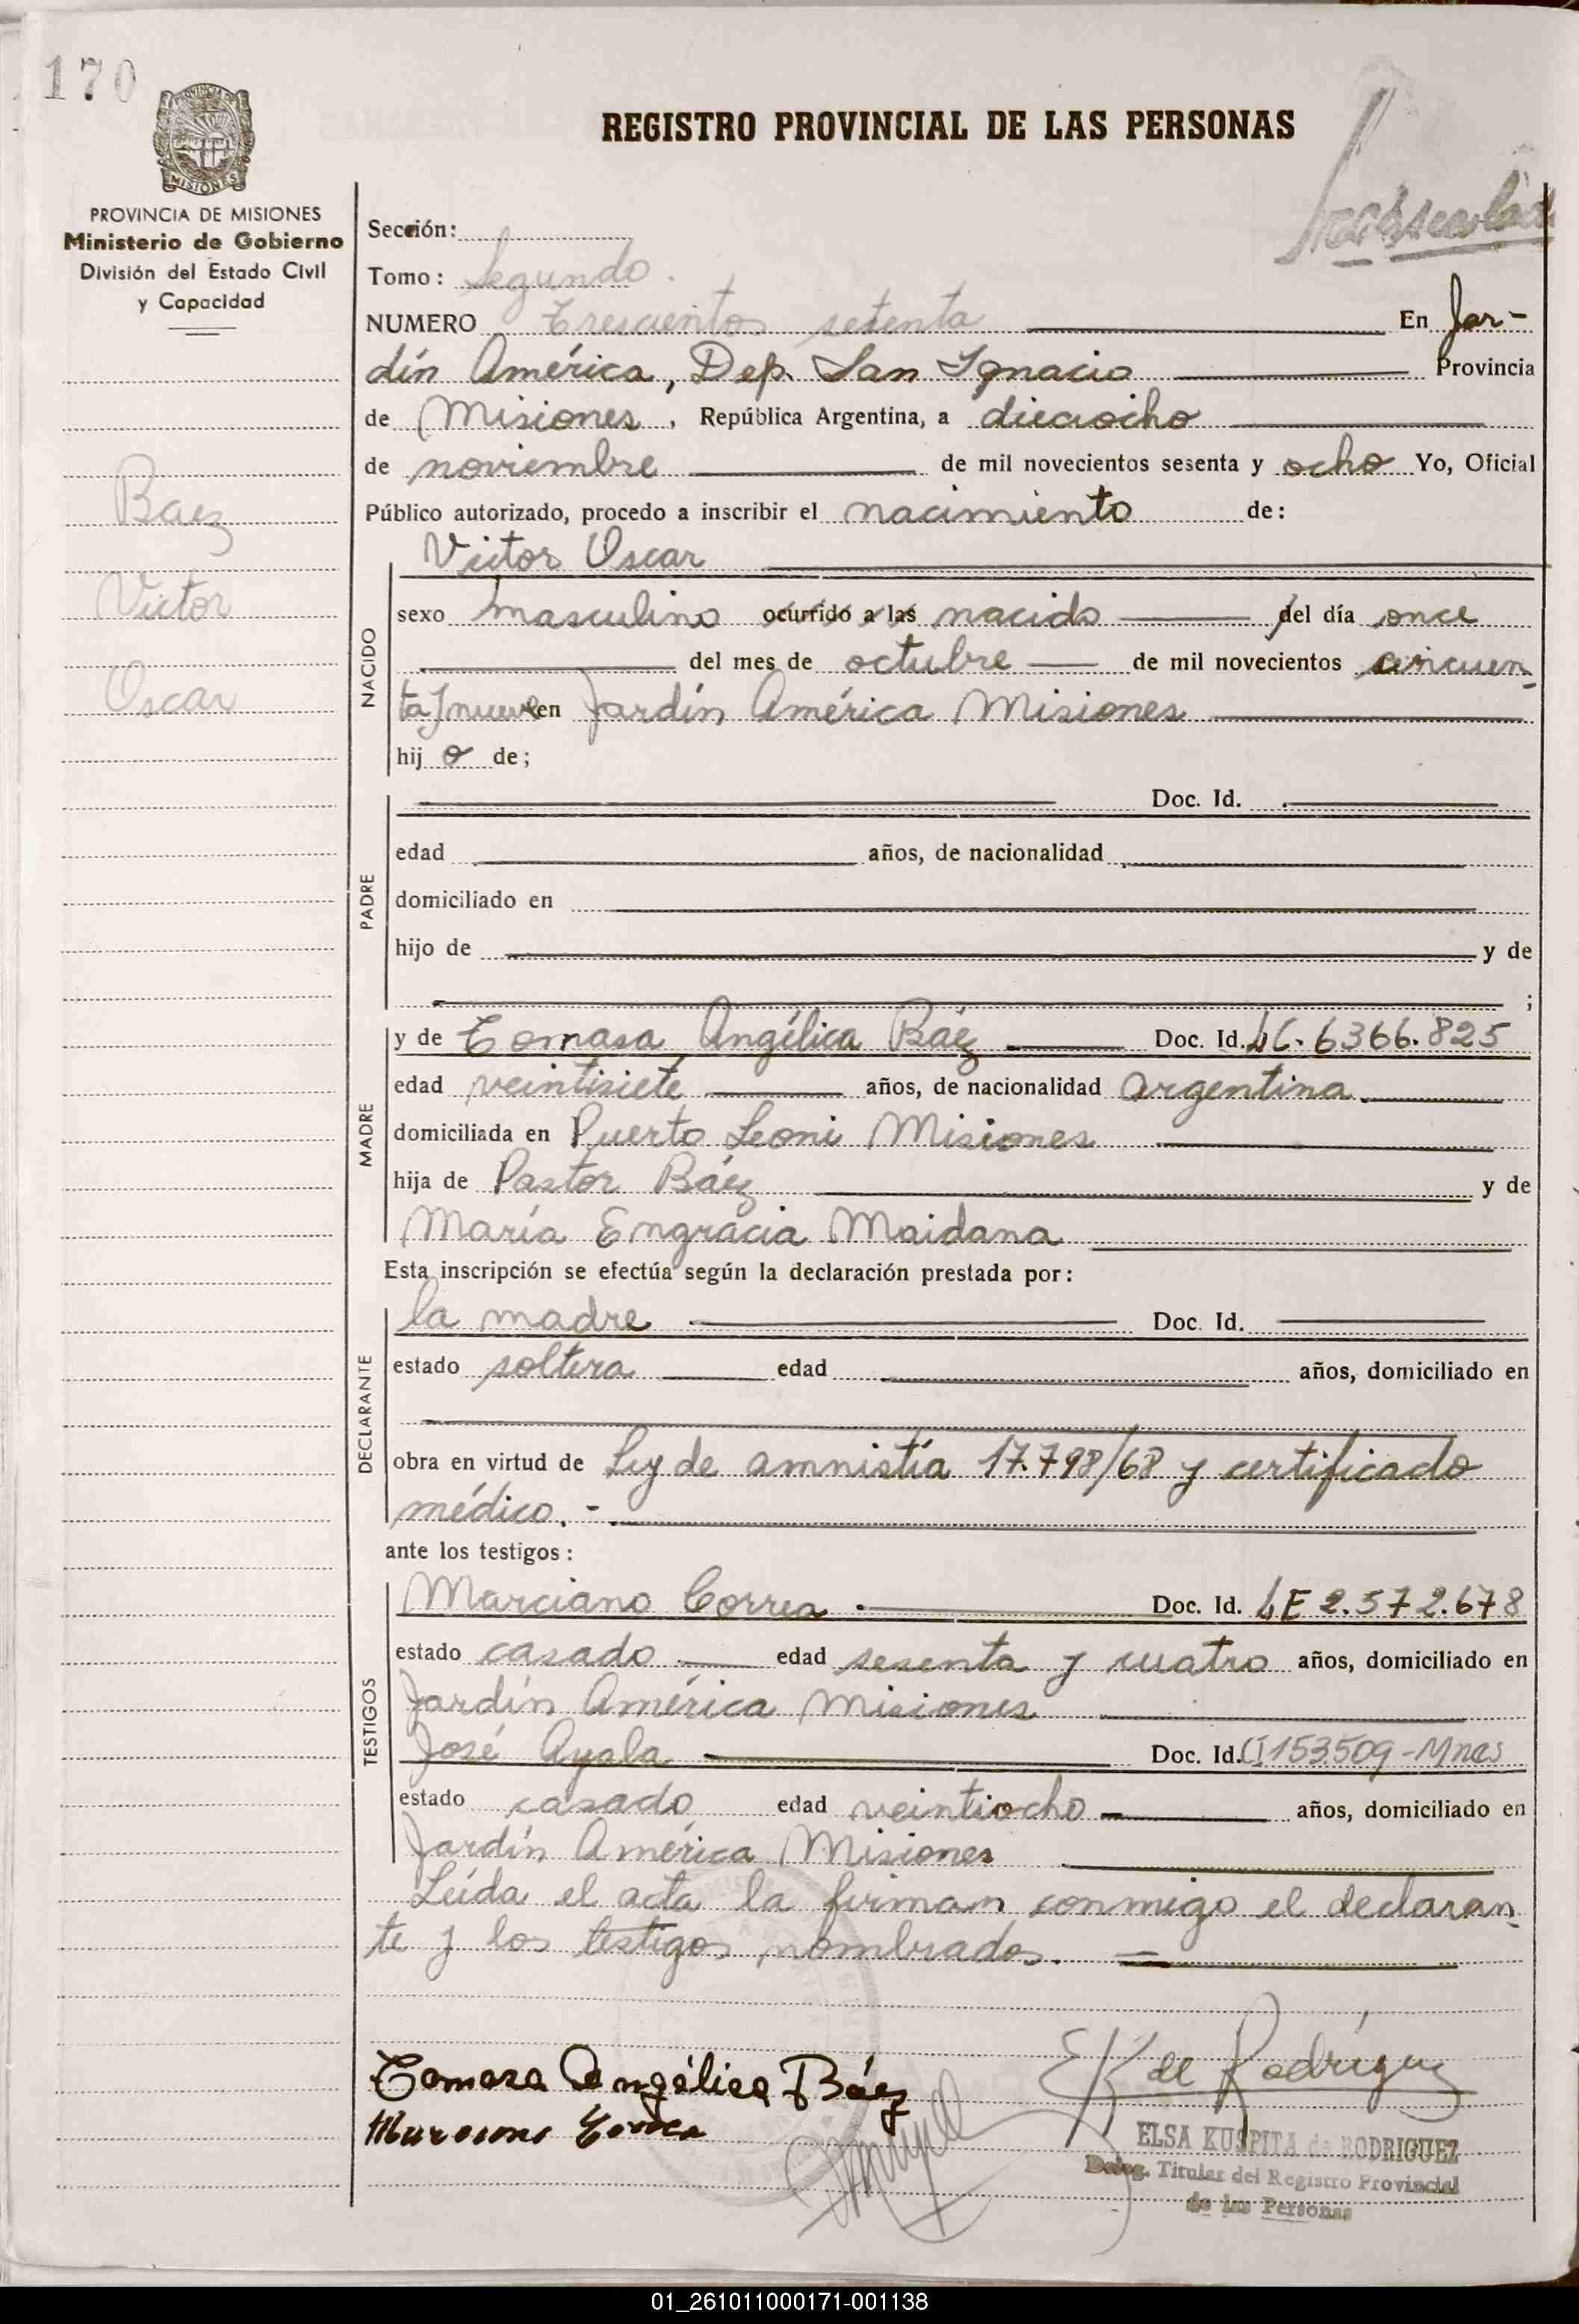 170
PROVINCIA DE MISIONES
Ministerio de Gobierno
División del Estado Civil
y Capacidad
REGISTRO PROVINCIAL DE LAS PERSONAS
Sección:
Tomo: Segundo.
NUMERO Trescientos setenta En Jar-
dín América, Dep. San Ignacio Provincia
de Misiones, República Argentina, a dieciocho
de noviembre de mil novecientos sesenta y ocho Yo, Oficial
Público autorizado, procedo a inscribir el nacimiento de:
Victor Oscar
Baez
Victor
Oscar
NACIDO
sexo masculino ocurrido a las nacido del día once
del mes de octubre de mil novecientos cincuen-
ta y nueve en Jardín América Misiones
hijo de;
PADRE
Doc. Id.
edad años, de nacionalidad
domiciliado en
hijo de y de
;
MADRE
y de Tomasa Angélica Báez Doc. Id. LC. 6366.825
edad veintisiete años, de nacionalidad argentina
domiciliada en Puerto Leoni Misiones
hija de Pastor Báez y de
María Engracia Maidana
Esta inscripción se efectúa según la declaración prestada por:
DECLARANTE
la madre Doc. Id.
estado soltera edad años, domiciliado en
obra en virtud de Ley de amnistía 17.798/68 y certificado
médico. -
ante los testigos:
TESTIGOS
Marciano Correa Doc. Id. LE 2.572.678
estado casado edad sesenta y cuatro años, domiciliado en
Jardín América Misiones
José Ayala Doc. Id. CI 153.509-Mnes
estado casado edad veintiocho años, domiciliado en
Jardín América Misiones
Leída el acta la firman conmigo el declaran-
te y los testigos nombrados.
Tomasa Angélica Báez
EK de Rodríguez
ELSA KUSPITA de RODRIGUEZ
Deleg. Titular del Registro Provincial
de las Personas
01_261011000171-001138